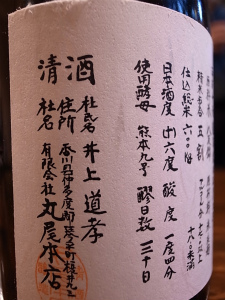 仕込総米 六〇〇瓩
日本酒度 ㈩六度 酸度 一度四分
使用酵母 熊本九号 醪日数 三十日
清酒
杜氏名 井上道孝
住所 香川県仲多度郡琴平町榎井九三
社名 有限会社丸尾本店